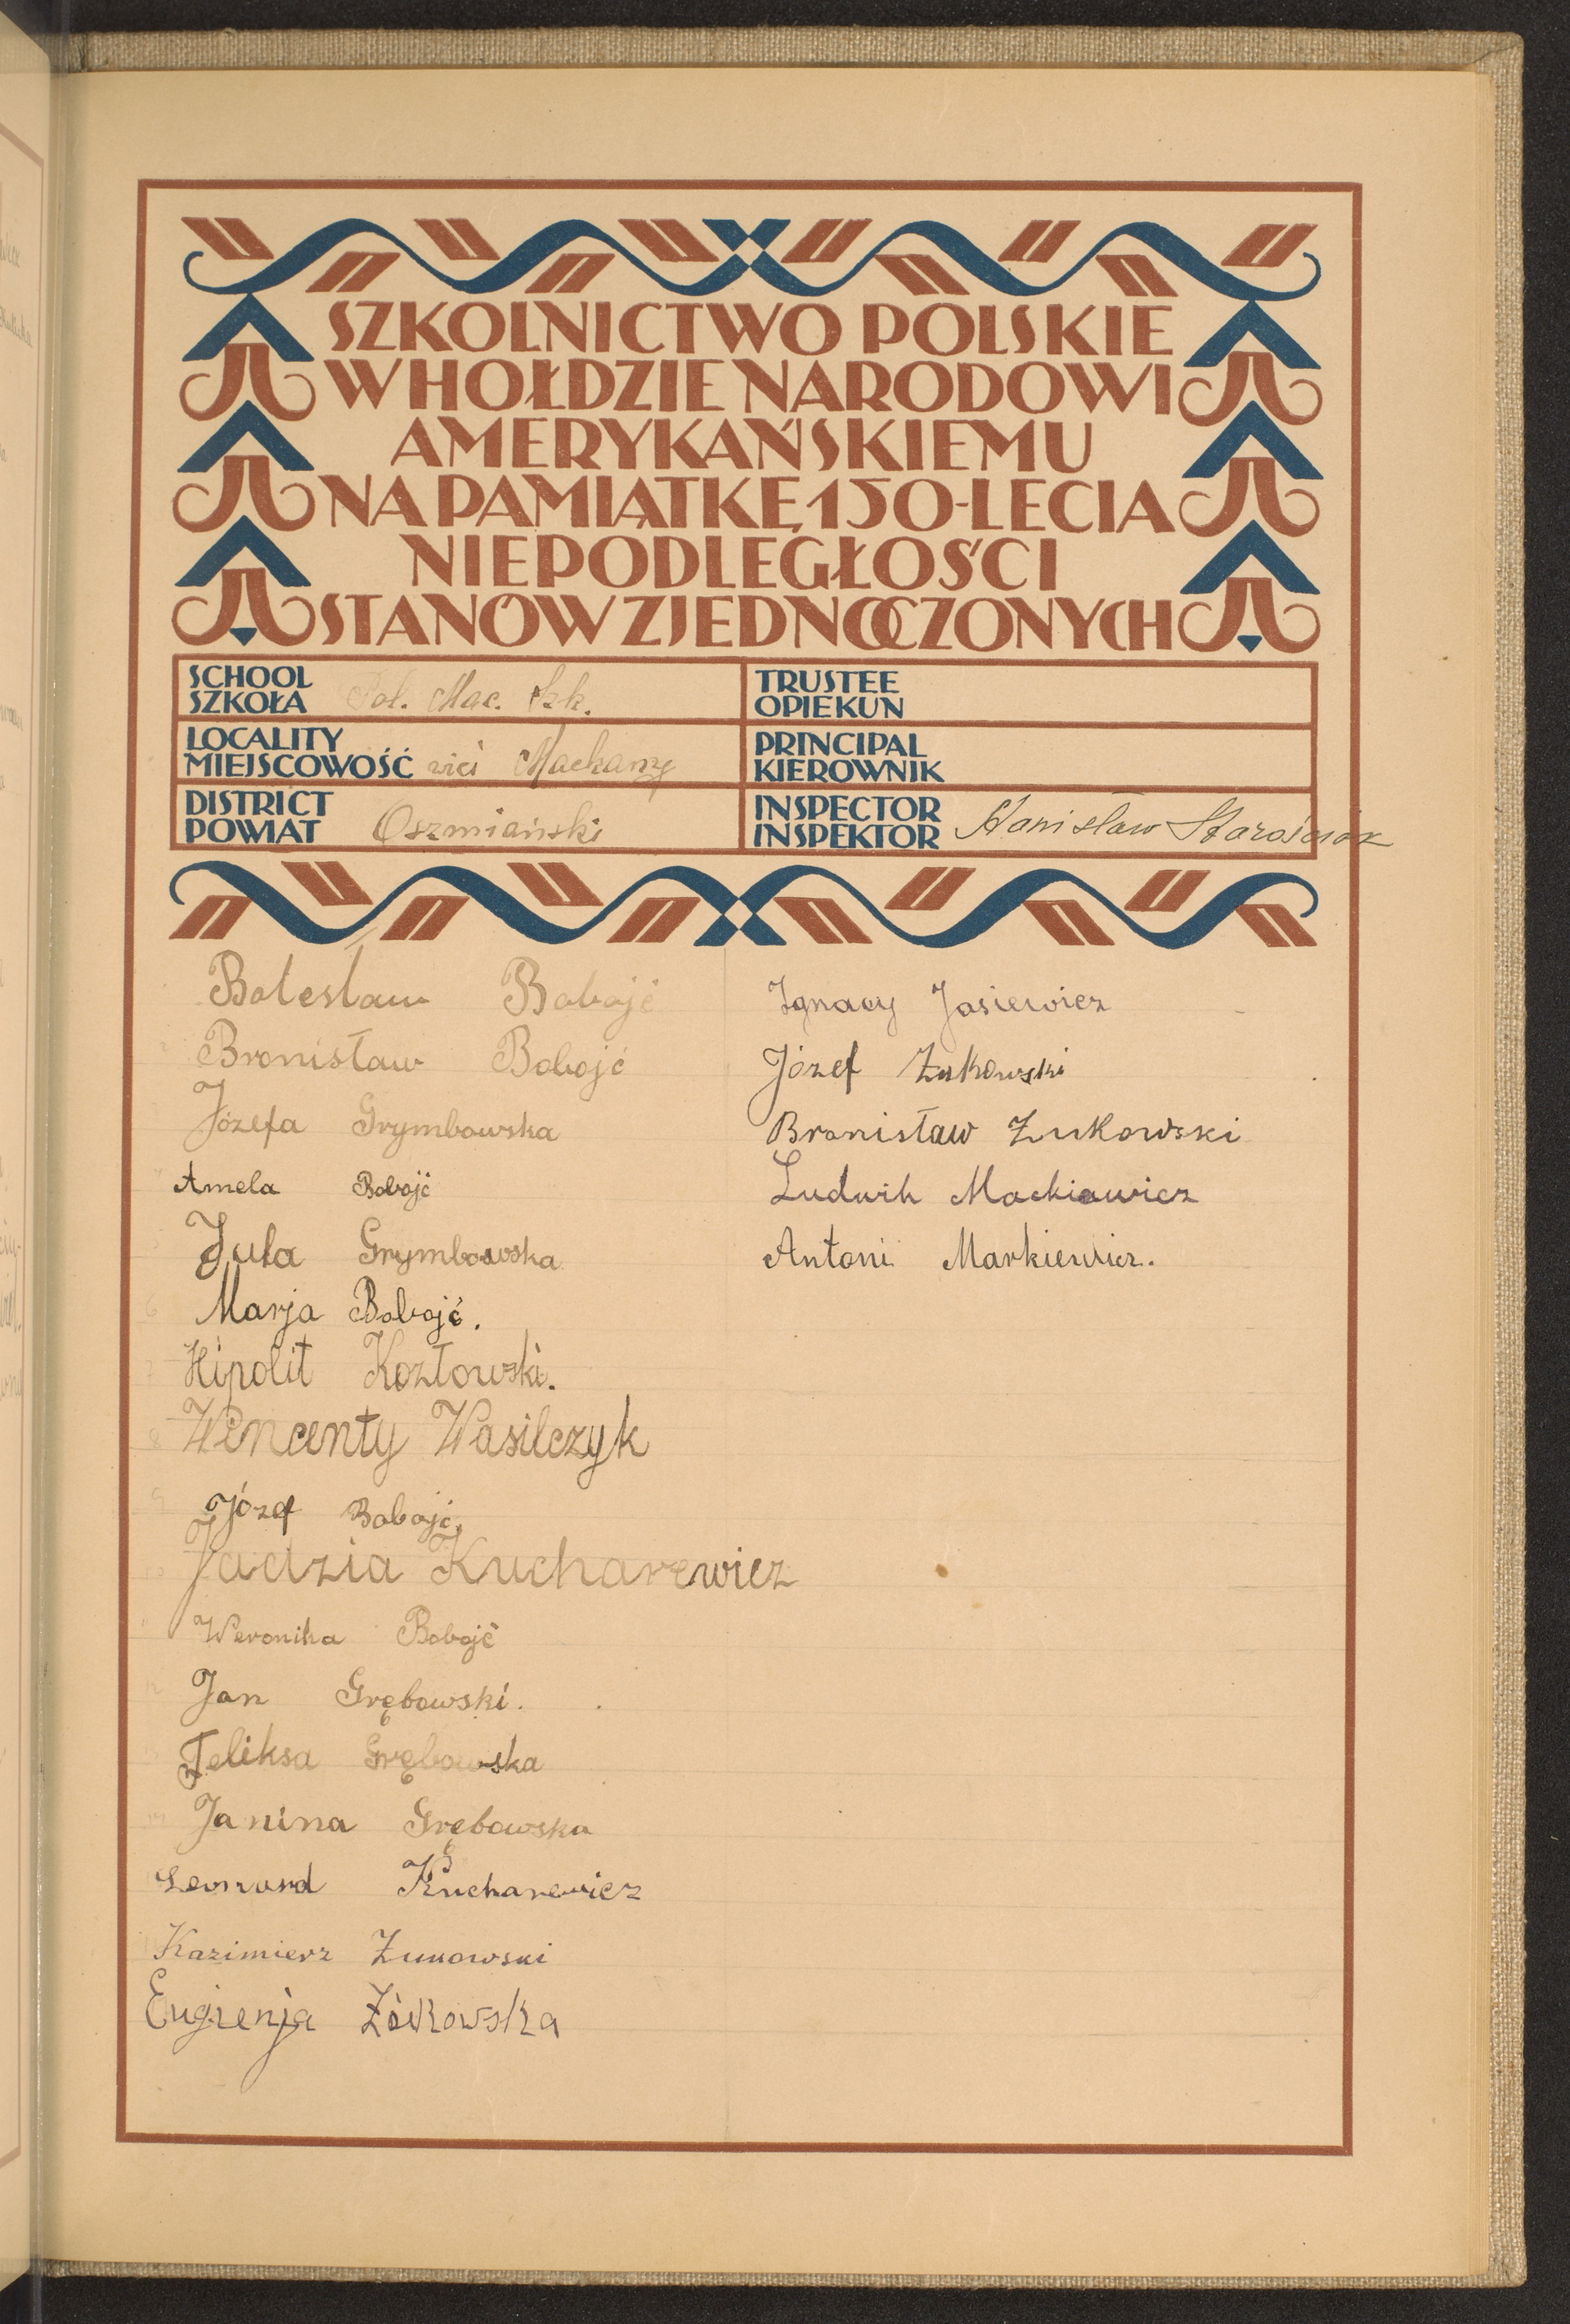 SZKOLNICTWO POLSKIE
W HOŁDZIE NARODOWI
AMERYKAŃSKIEMU
NA PAMIĄTKĘ 150-LECIA
NIEPODLEGŁOŚCI
STANÓW ZJEDNOCZONYCH
SCHOOL
SZKOŁA Pol. Mac. Szk.
LOCALITY
MIEJSCOWOŚĆ wieś Mackany
DISTRICT
POWIAT Oszmiański
TRUSTEE
OPIEKUN
PRINCIPAL
KIEROWNIK
INSPECTOR
INSPEKTOR Stanisław Starościak
Bolesław Bobojć
Bronisław Bobojć
Józefa Grymbowska
Amela Bobojć
Jula Grymbowska
Marja Bobojć.
Hipolit Kozłowski.
Wencenty Wasilczyk
Józef Bobojć.
Jadzia Kucharewicz
Weronika Bobojć
Jan Grębowski.
Feliksa Grębowska
Janina Grębowska
Leonard Kucharewicz
Kazimierz Żukowski
Eugienja Żókowska
Ignacy Jasiewicz
Józef Żukowski
Bronisław Żukowski
Ludwik Mackiewicz
Antoni Markiewicz.